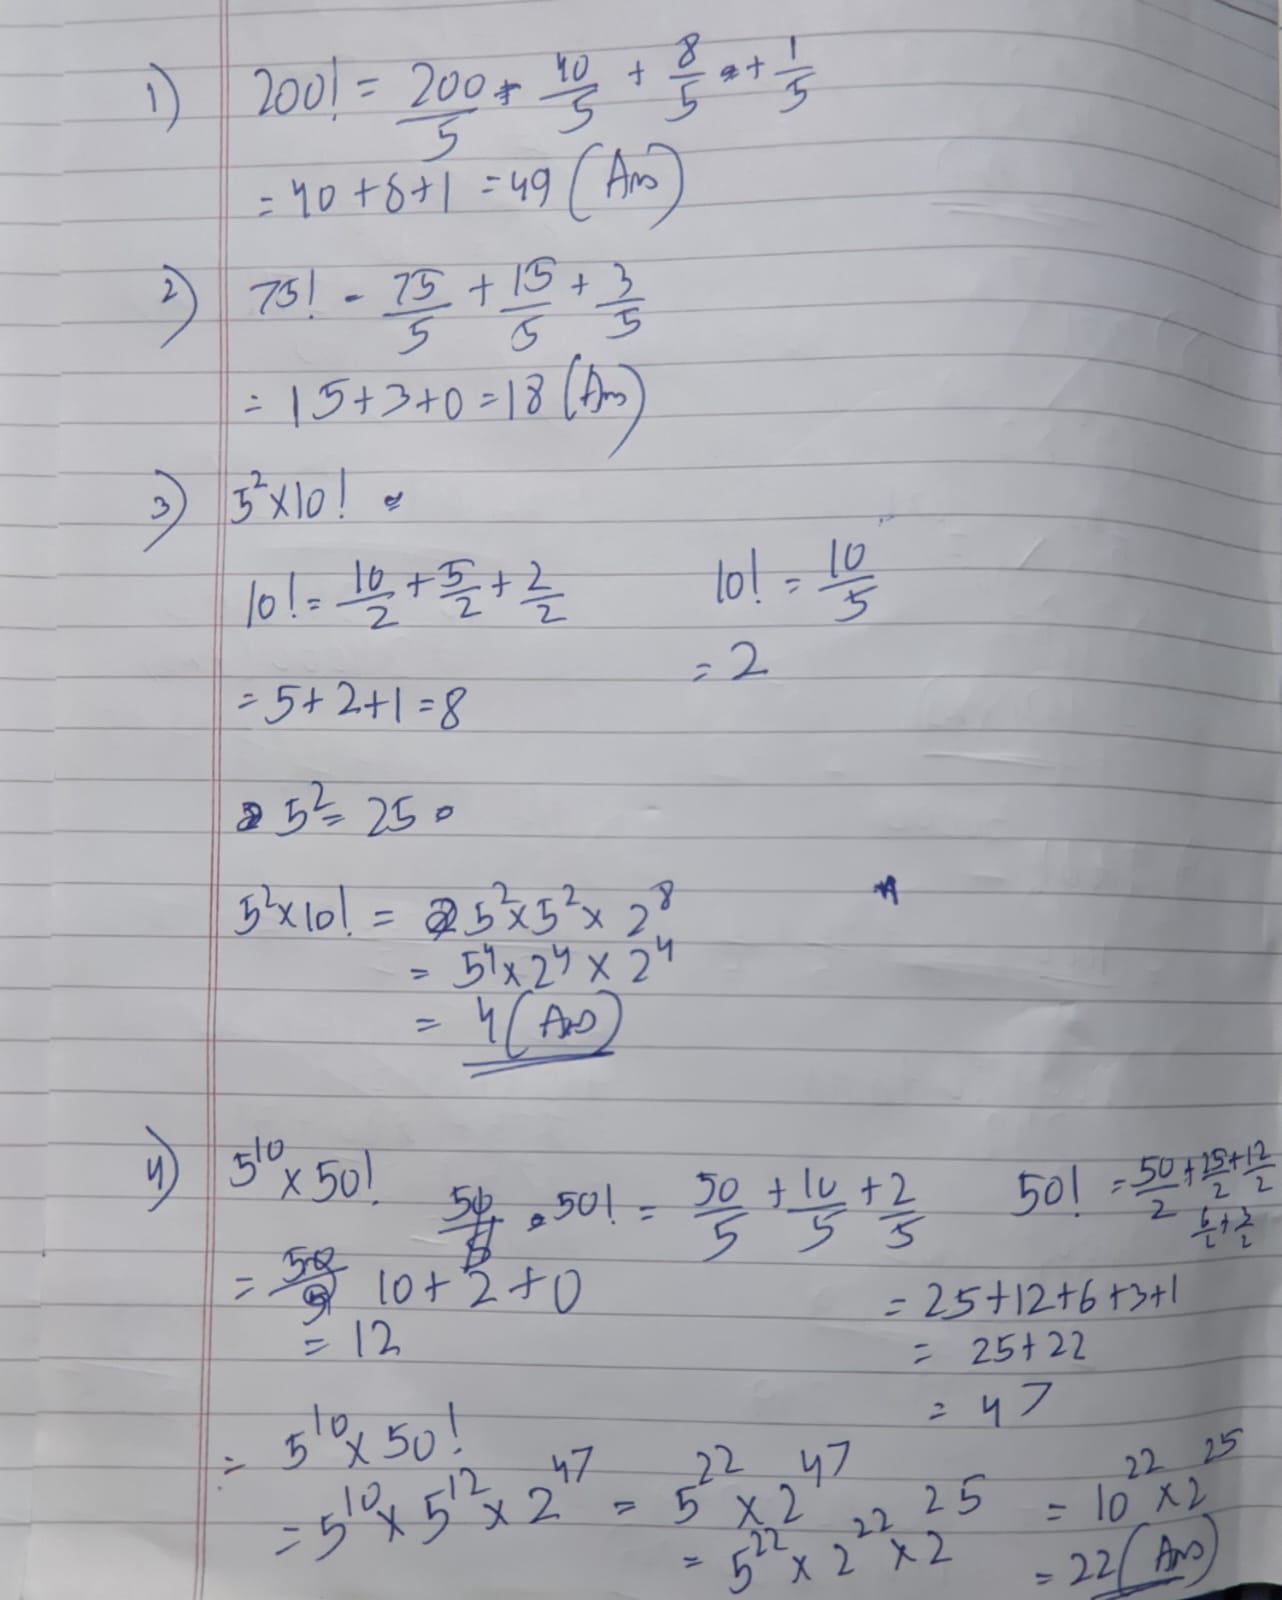 1) 200! = 200/5 + 40/5 + 8/5 + 1/5
= 40 + 8 + 1 = 49 (Ans)
2) 75! - 75/5 + 15/5 + 3/5
= 15 + 3 + 0 = 18 (Ans)
3) 5² × 10!
10! = 10/2 + 5/2 + 2/2
= 5 + 2 + 1 = 8
10! = 10/5
= 2
5² = 25
5² × 10! = 5² × 5² × 2⁸
= 5⁴ × 2⁴ × 2⁴
= 4 (Ans)
4) 5¹⁰ × 50!
50! = 50/5 + 10/5 + 2/5
= 10 + 2 + 0
= 12
50! = 50/2 + 25/2 + 12/2
6/2 + 3/2
= 25 + 12 + 6 + 3 + 1
= 25 + 22
= 47
= 5¹⁰ × 50!
= 5¹⁰ × 5¹² × 2⁴⁷ = 5²² × 2⁴⁷
= 5²² × 2²² × 2²⁵
= 10²² × 2²⁵
= 22 (Ans)